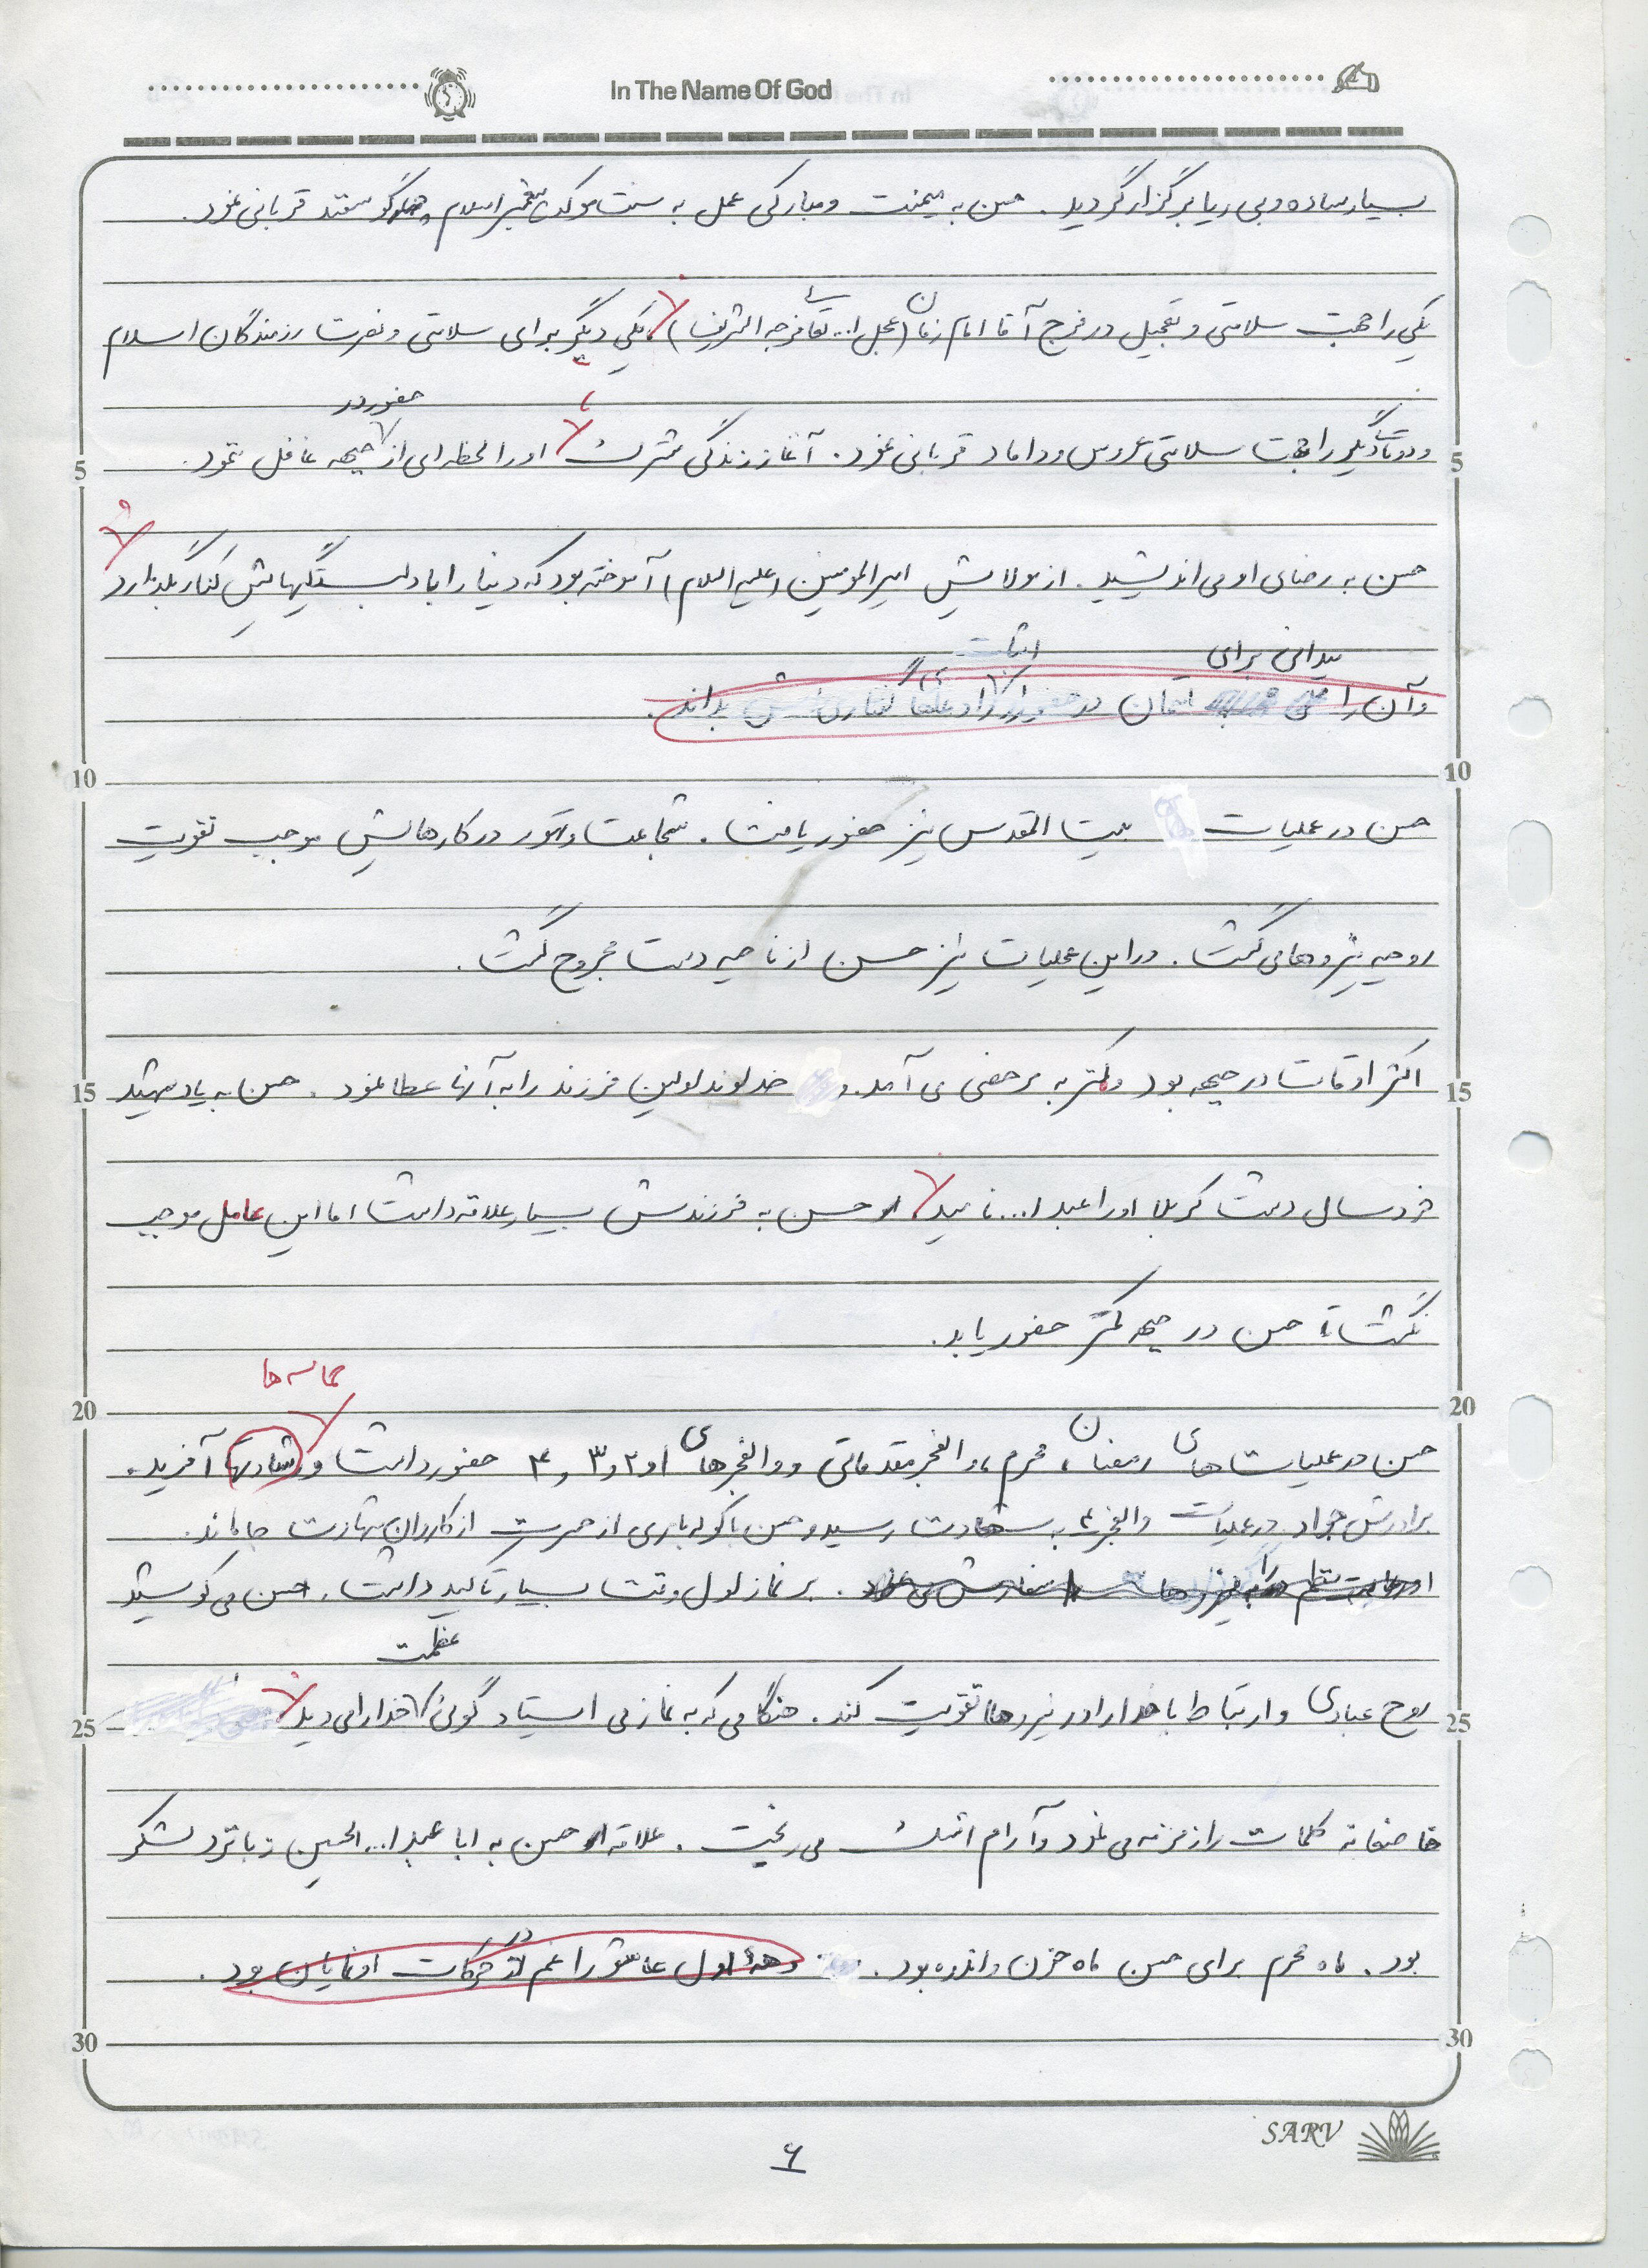 In The Name Of God
بسیار ساده و بی ریا برگزار گردید. حسن به میمنت و مبارکی عمل به سنت موکد پیغمبر اسلام چهار گوسفند قربانی نمود.
یکی را جهت سلامتی و تعجیل در فرج آقا امام زمان (عجل ا... تعالی فرجه الشریف) یکی دیگر برای سلامتی و نصرت رزمندگان اسلام
حضور در
و دوتای دیگر را جهت سلامتی عروس و داماد قربانی نمود. آغاز زندگی مشترک او را لحظه ای از جبهه غافل ننمود.
5 5
حسن به رضای او می اندیشید. از مولایش امیرالمومنین (علیه السلام) آموخته بود که دنیا را با دلبستگیهایش کنار بگذارد
میدانی برای اثبات
و آن را امتحان در بداند.
10 10
حسن در عملیات بیت المقدس نیز حضور یافت. شجاعت و تهور در کارهایش موجب تقویت
روحیه نیروها می گشت. در این عملیات نیز حسن از ناحیه دست مجروح گشت.
اکثر اوقات در جبهه بود و کمتر به مرخصی می آمد. خداوند اولین فرزند را به آنها عطا نمود. حسن به یاد شهید
15 15
خردسال دشت کربلا او را عبدا... نامید حسن به فرزندش بسیار علاقه داشت اما این عامل موجب
نگشت تا حسن در جبهه کمتر حضور یابد.
حماسه ها
20 20
حسن در عملیات های رمضان، محرم، والفجر مقدماتی و والفجرهای ۱ و ۲ و ۳ و ۴ حضور داشت و رشادتها آفرید.
برادرش جواد در عملیات والفجر ۴ به شهادت رسید و حسن با کوله باری از حسرت از کاروان شهادت جا ماند.
بر نماز اول وقت بسیار تاکید داشت. حسن می کوشید
عظمت
روح عبادی و ارتباط با خدا را در نیروها تقویت کند. هنگامی که به نماز می ایستاد گوئی خدا را می دید
25 25
خاضعانه کلمات را زمزمه می نمود و آرام اشک می ریخت. علاقه حسن به ابا عبدا... الحسین زبانزد لشکر
بود. ماه محرم برای حسن ماه حزن و اندوه بود. دهه اول عاشورا غم در حرکات او نمایان بود.
30 30
SARV
۶